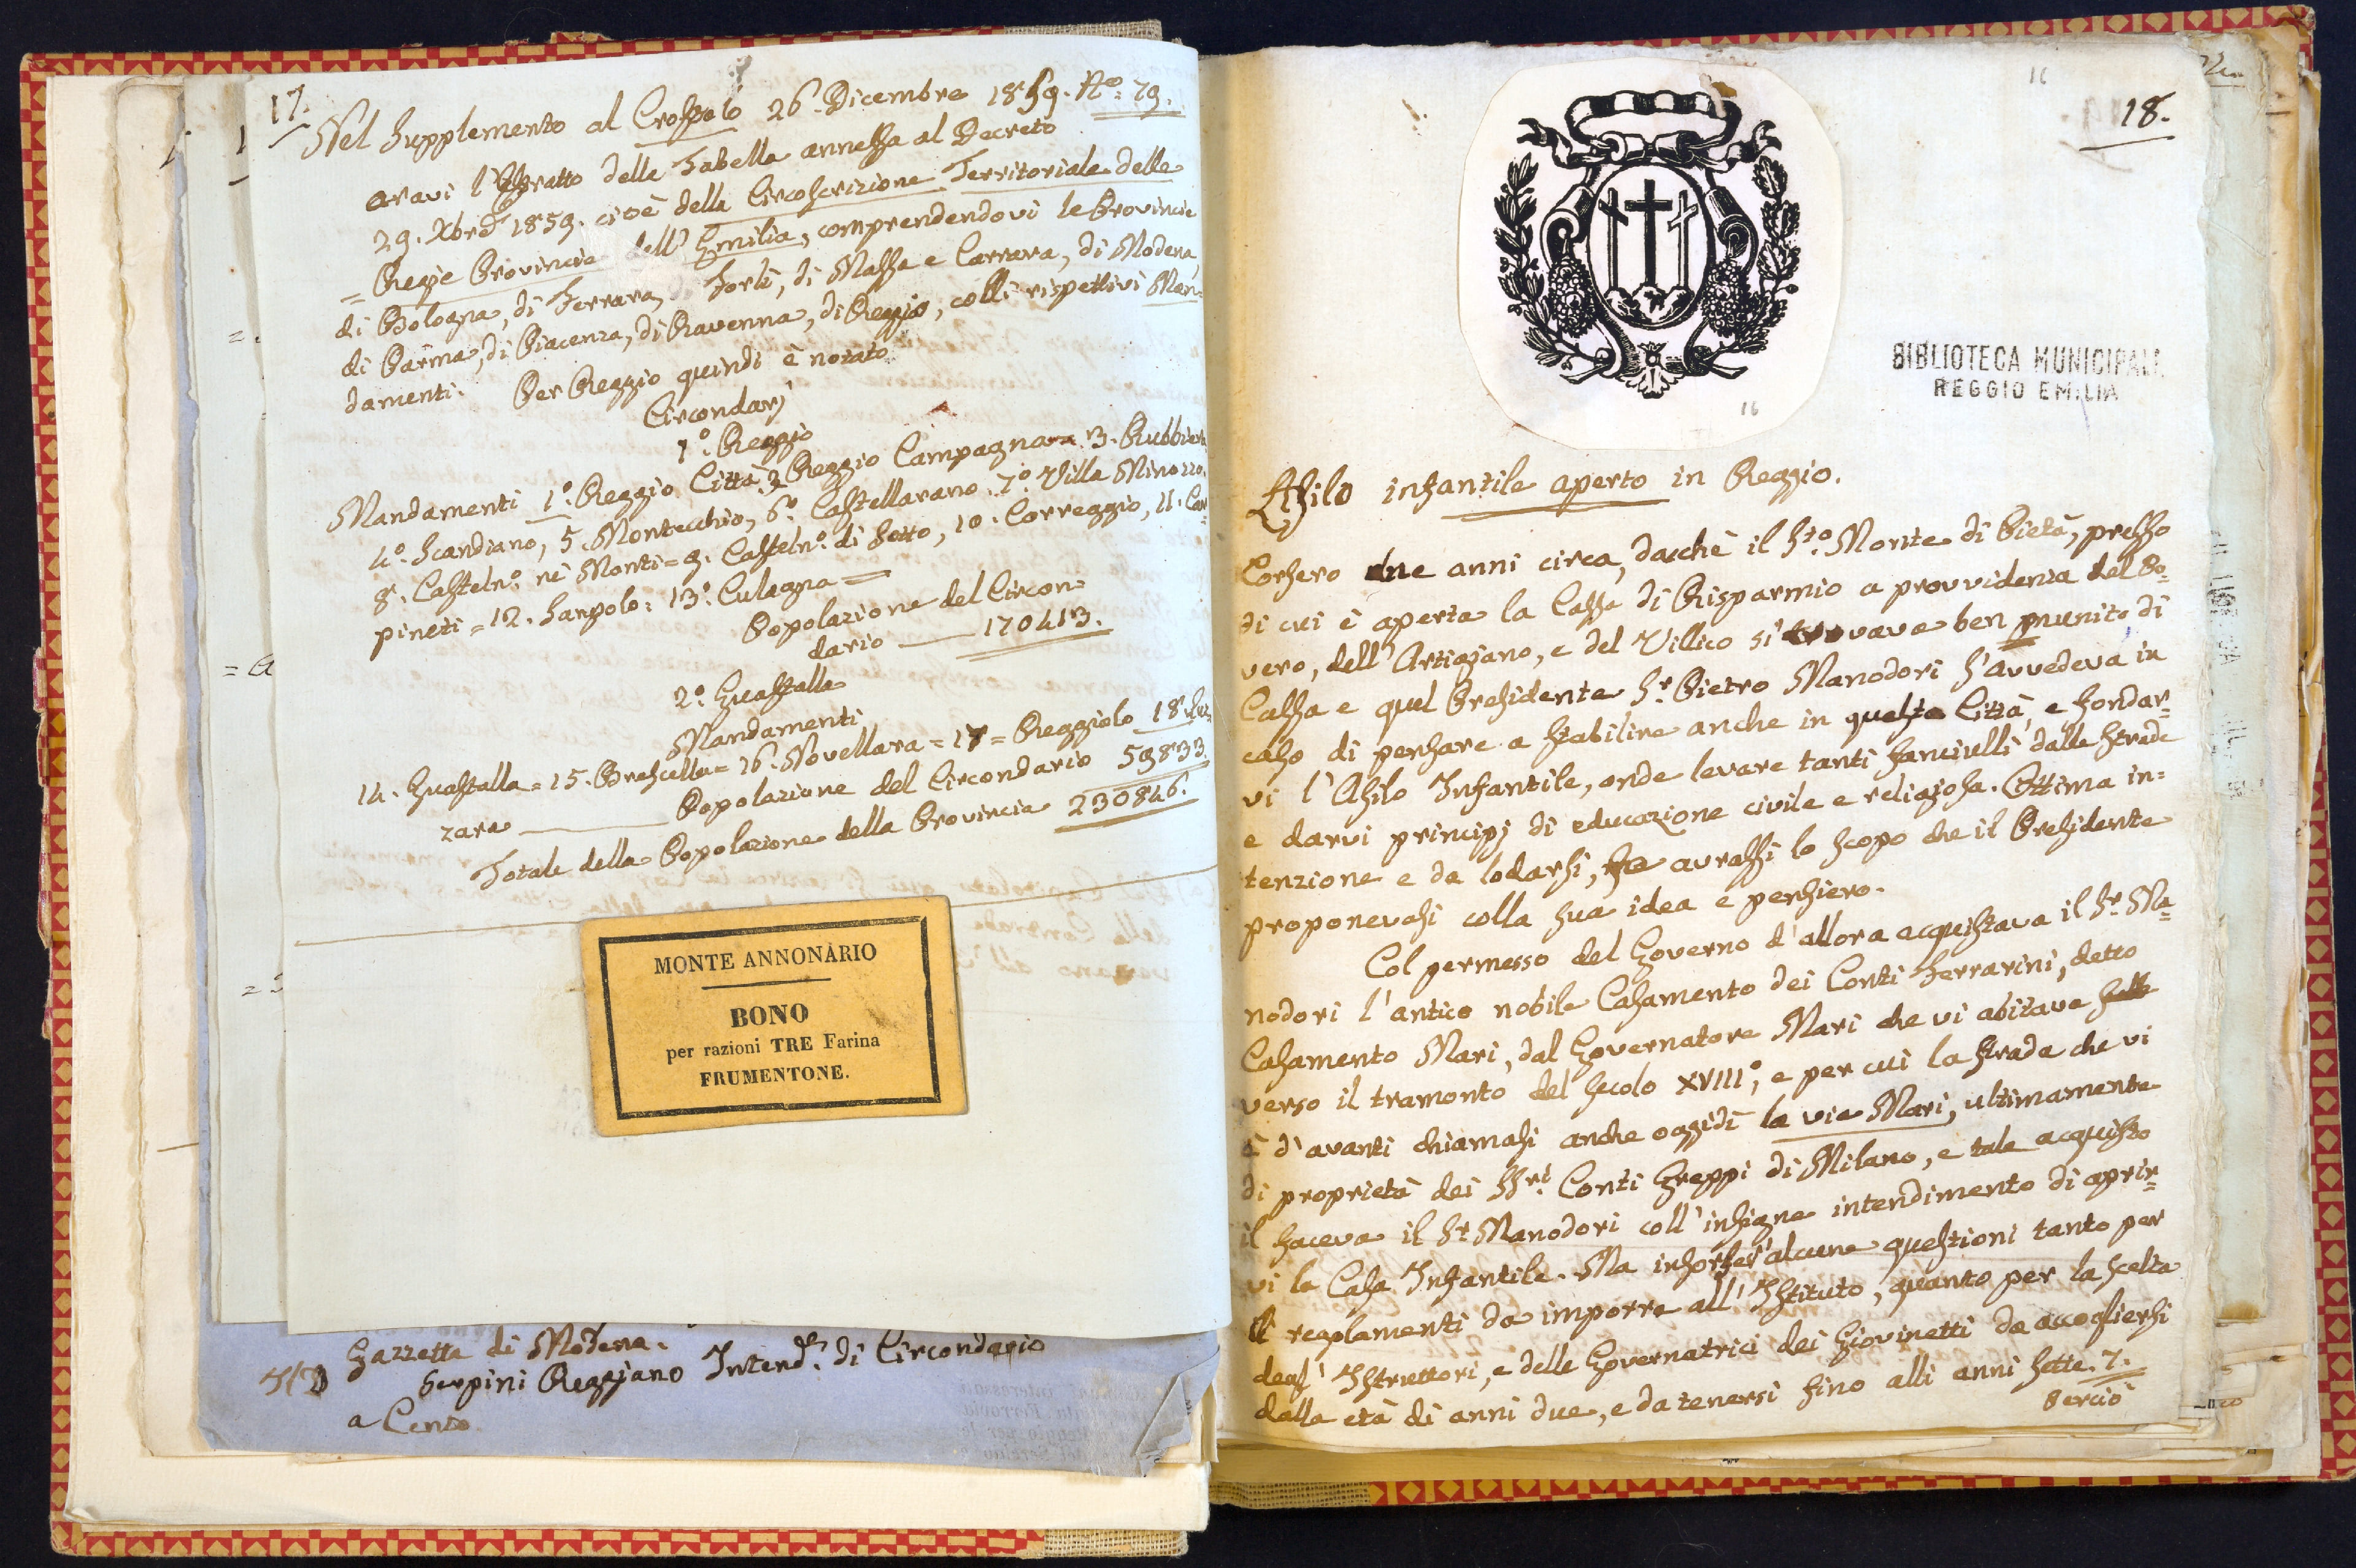 17.
Nel Supplemento al Crostolo 26. Dicembre 1859. N.º 79.
avavi l'Estratto delle Tabella annessa al Decreto
29. Xbre 1859. cioè della Circoscrizione Territoriale delle
= Regie Provincie dell' Emilia, comprendendovi le Provincie
di Bologna, di Ferrara, Forlì, di Massa e Carrara, di Modena,
di Parma, di Piacenza, di Ravenna, di Reggio, colli rispettivi Man=
damenti. Per Reggio quindi è notato
Circondarj
1º. Reggio
Mandamenti 1º. Reggio Città 2 Reggio Campagna = 3. Rubbiera
4º. Scandiano, 5. Montecchio, 6º. Castellarano. 7º. Villa Minozzo,
8. Casteln.º nè Monti = 9. Casteln.º di Sotto, 10. Correggio, 11. Car=
pineti = 12. Sanpolo = 13º. Culagna =
Popolazione del Circon=
dario — 170413.
2º. Guastalla
Mandamenti
14. Guastalla = 15. Brescello = 16. Novellara = 17 = Reggiolo 18. Luz=
zara — Popolazione del Circondario 59833.
Totale della Popolazione della Provincia 230846.
MONTE ANNONARIO
BONO
per razioni TRE Farina
FRUMENTONE.
Gazzetta di Modena.
Serpini Reggiano Intend.e di Circondario
a Cento
16
18.
BIBLIOTECA MUNICIPALE
REGGIO EMILIA
16
Asilo infantile aperto in Reggio.
Corsero due anni circa, dacchè il S.to Monte di Pietà, presso
di cui è aperta la Cassa di Risparmio a provvidenza del Po=
vero, dell'Artigiano, e del Villico si trovava ben munito di
Cassa e quel Presidente S.r Pietro Manodori s'avvedeva in
caso di pensare a stabilire anche in questa Città, e fondar=
vi l'Asilo Infantile, onde levare tanti fanciulli dalle strade
e darvi principj di educazione civile e religiosa. Ottima in=
tenzione e da lodarsi, se avrassi lo scopo che il Presidente
proponevasi colla sua idea e pensiero.
Col permesso del Governo d'allora acquistava il S.r Ma=
nodori l'antico nobile Casamento dei Conti Ferrarini, detto
Casamento Mari, dal Governatore Mari che vi abitava
verso il tramonto del secolo XVIIIº, e per cui la strada che vi
è d'avanti chiamasi anche oggidì la via Mari, ultimamente
di proprietà dei SS.ri Conti Greppi di Milano, e tale acquisto
il faceva il S.r Manodori coll'insigne intendimento di aprir=
vi la Casa Infantile. Ma insorser alcune questioni tanto per
li regolamenti da imporre all'Istituto, quanto per la scelta
degl' Istruttori, e delle Governatrici dei Giovinetti da accogliersi
dalla età di anni due, e da tenersi fino alli anni sette. 7.
Perciò